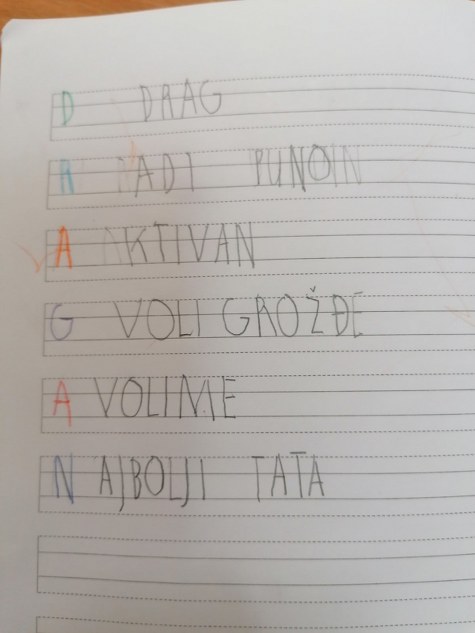 D DRAG
R ADI PUNO
A AKTIVAN
G VOLI GROŽĐE
A VOLIME
N AJBOLJI TATA